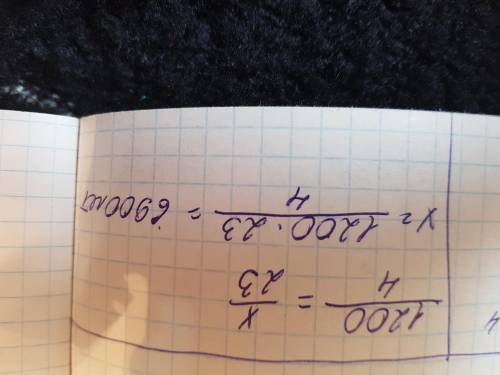 1200/4 = x/23
x = 1200·23/4 = 6900 мл
4